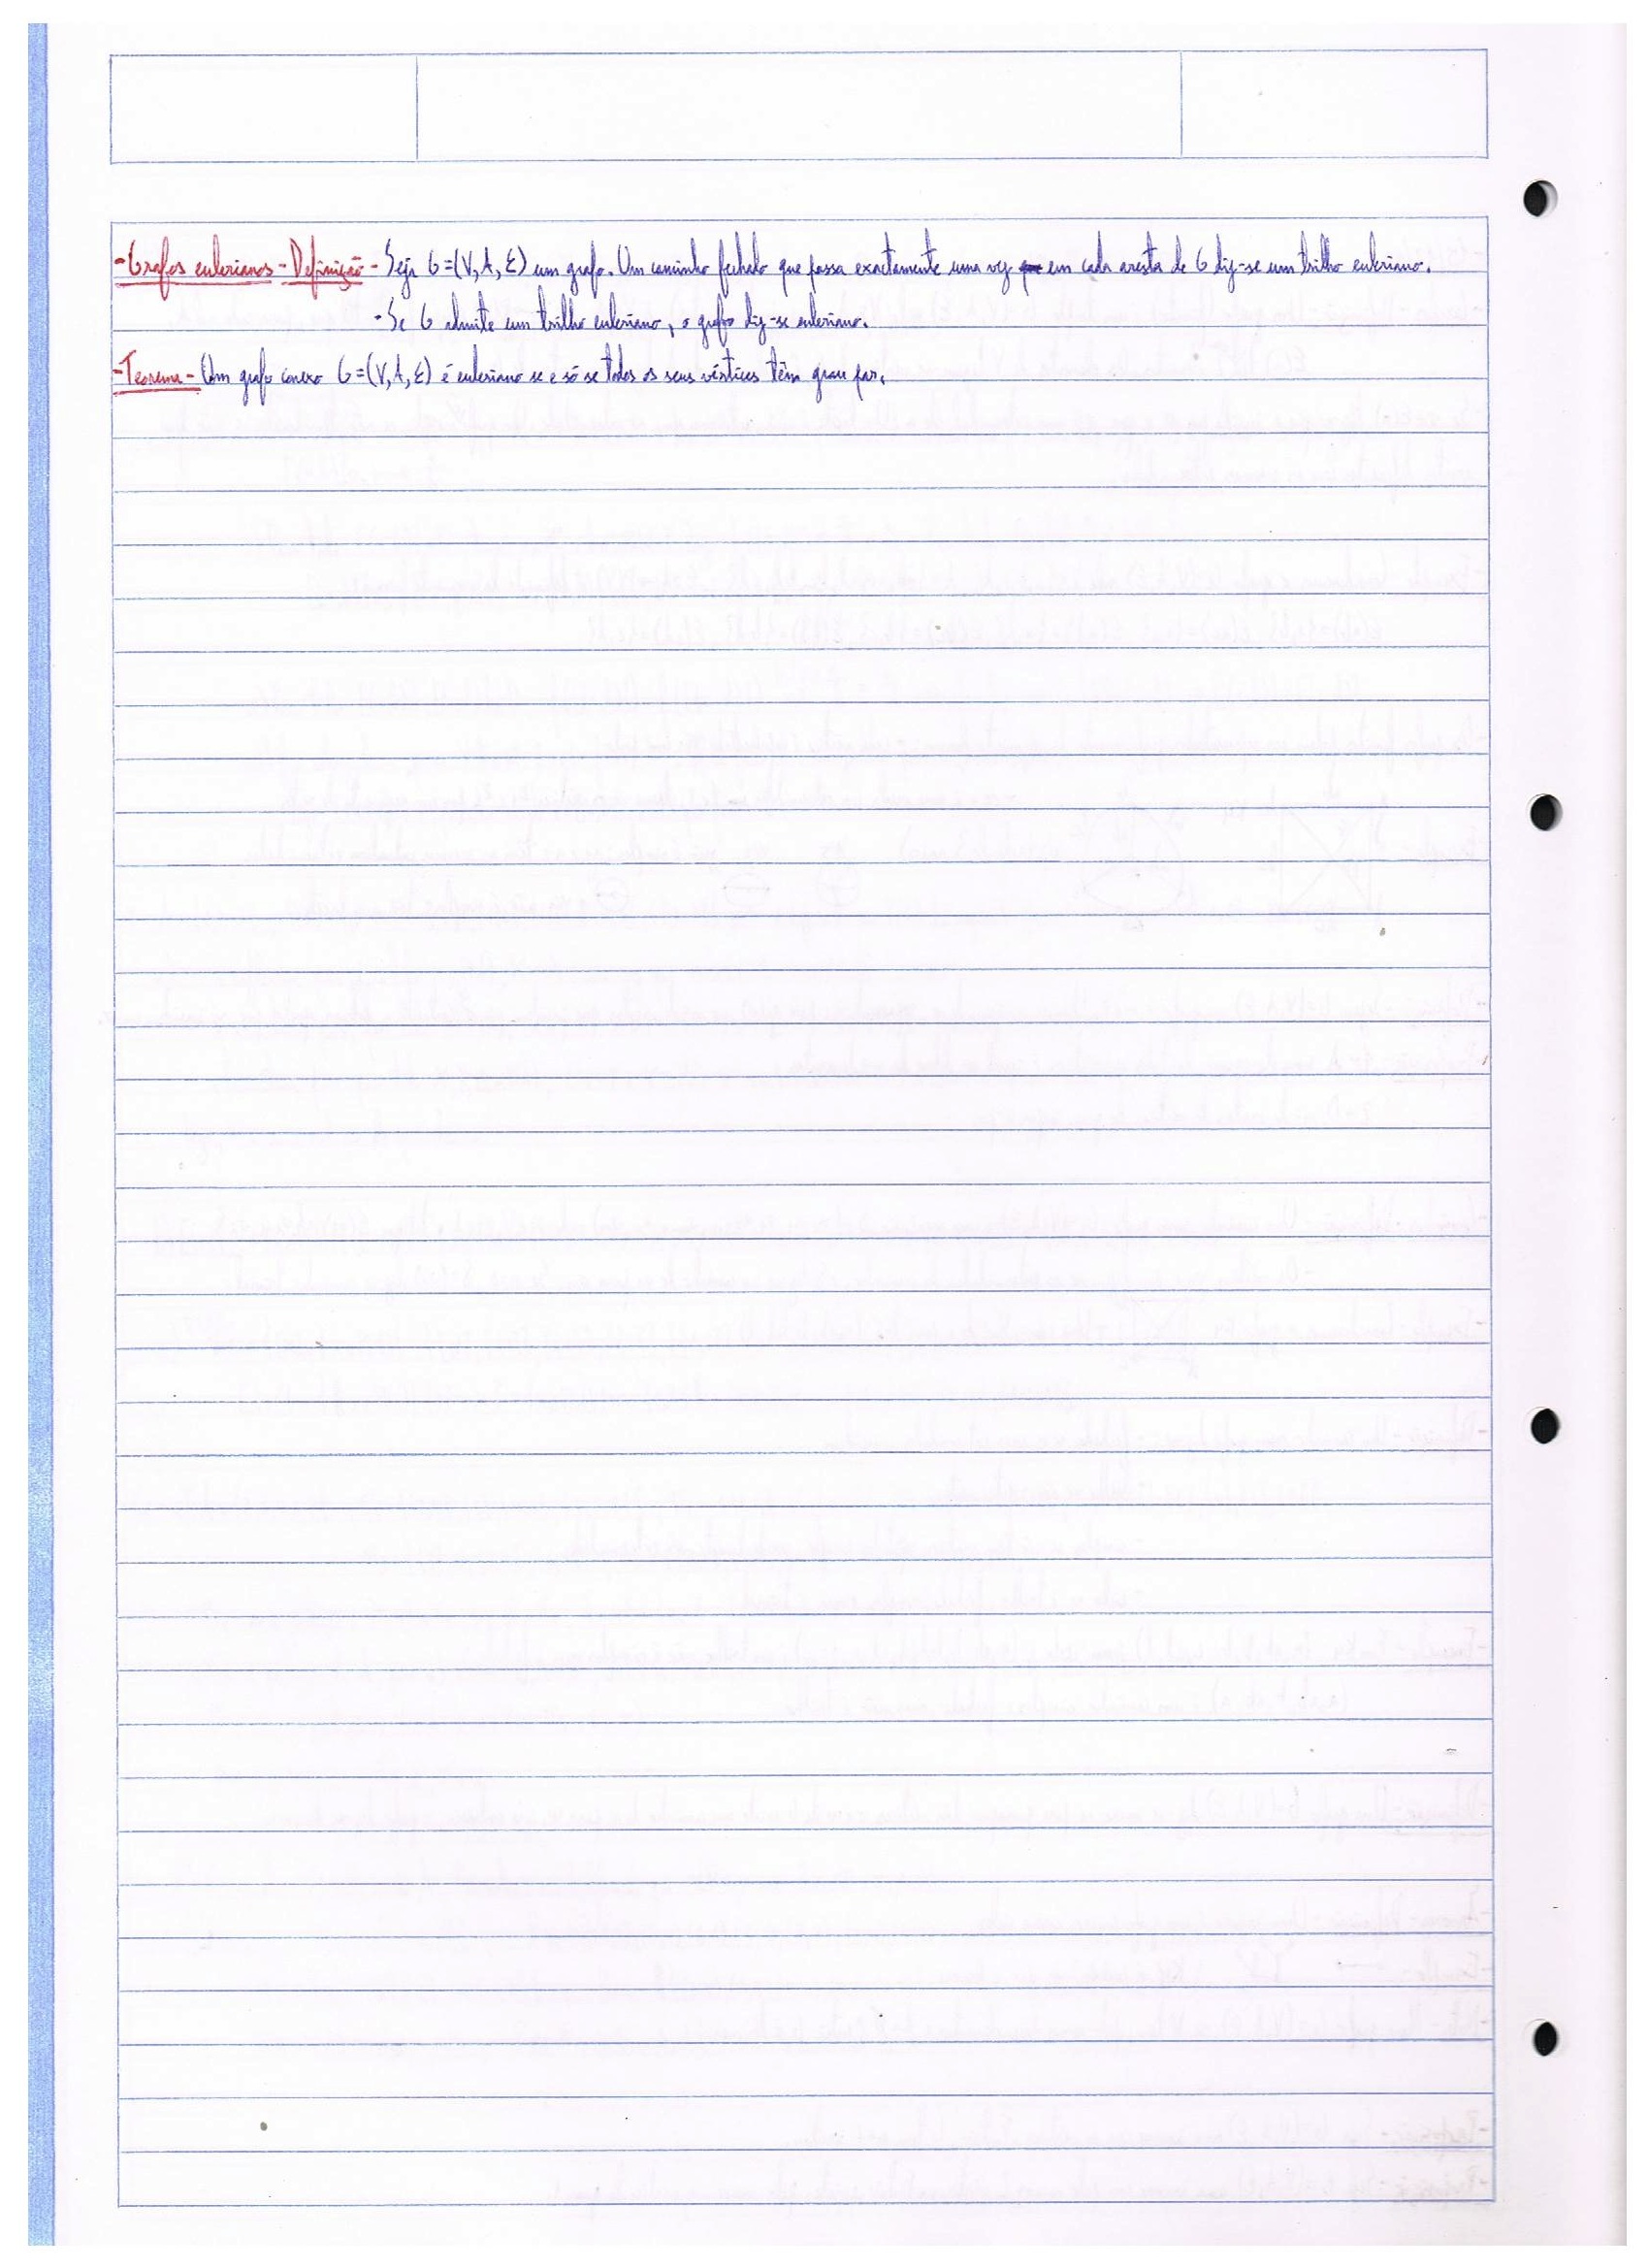 -Grafos eulerianos - Definição - Seja G=(V,A,Ɛ) um grafo. Um caminho fechado que passa exactamente uma vez em cada aresta de G diz-se um trilho euleriano.
- Se G admite um trilho euleriano, o grafo diz-se euleriano.
-Teorema - Um grafo conexo G=(V,A,Ɛ) é euleriano se e só se todos os seus vértices têm grau par.